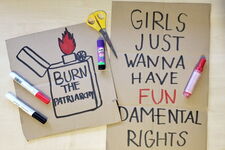 BURN
THE
PATRIARCHY
GIRLS
JUST
WANNA
HAVE
FUN
DAMENTAL
RIGHTS